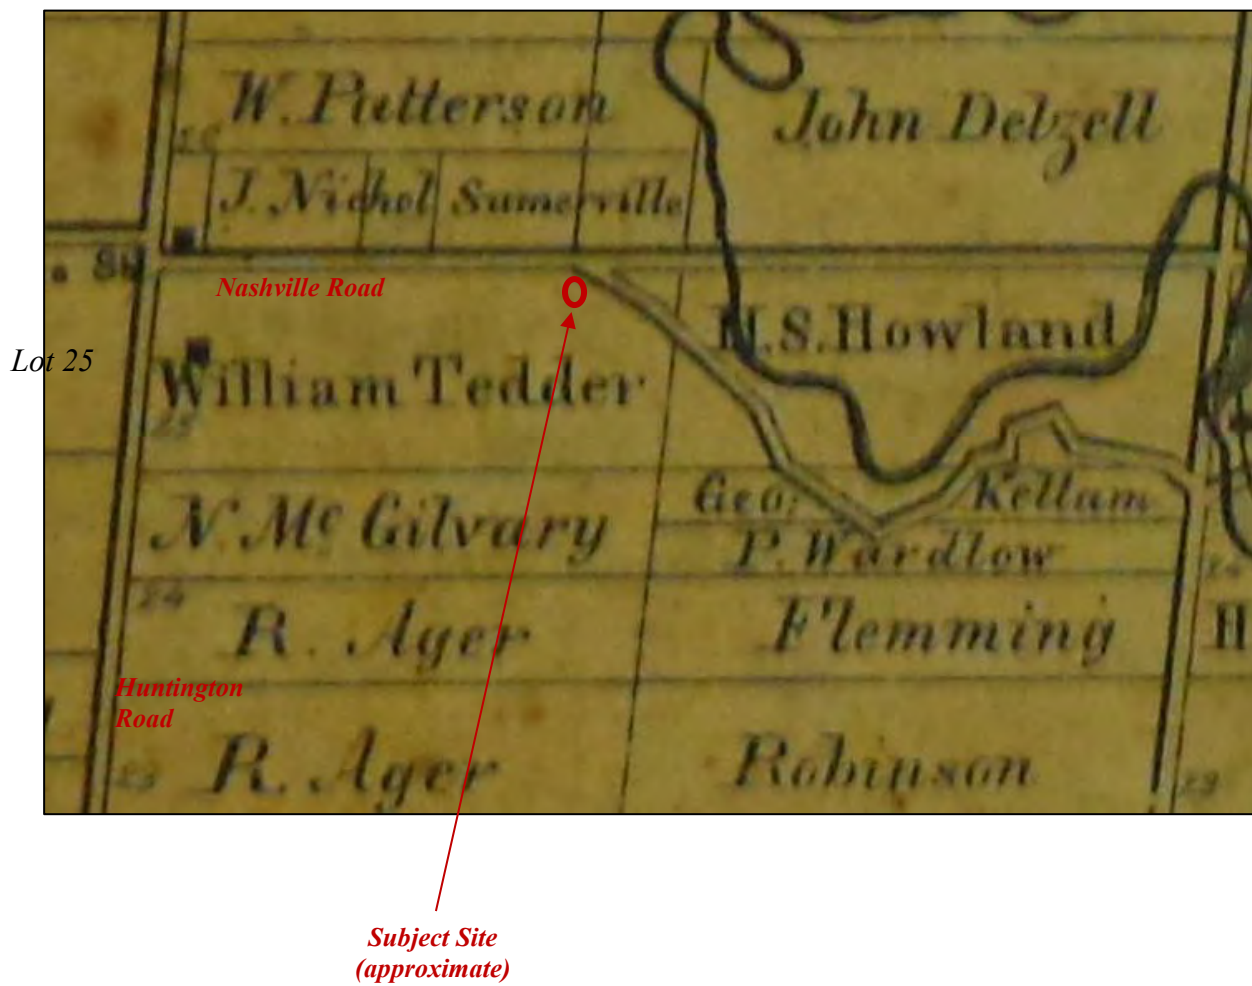 W. Patterson
John Delzell
J. Nichol Sumerville
Nashville Road
H.S. Howland
Lot 25
William Tedder
25
Geo: Kellam
N. Mc Gilvary
P. Wardlow
24
R. Ager Flemming
H
Huntington
Road
R. Ager Robinson
23
Subject Site
(approximate)